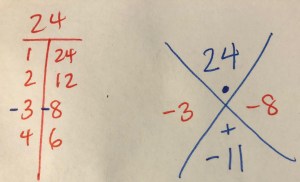 24
1 24
2 12
-3 -8
4 6
24
•
-3 -8
+
-11